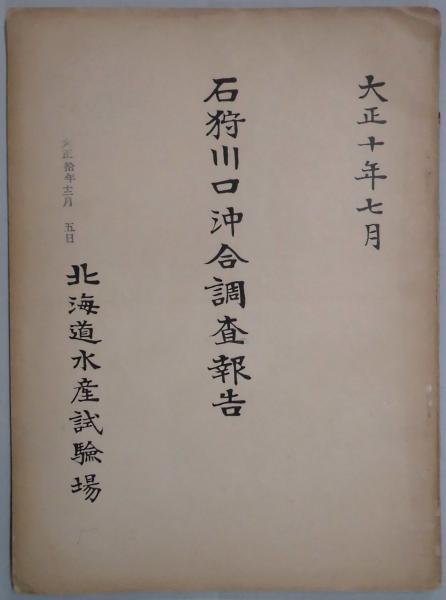 大正十年七月
石狩川口沖合調査報告
大正拾年十二月 五日
北海道水産試驗場